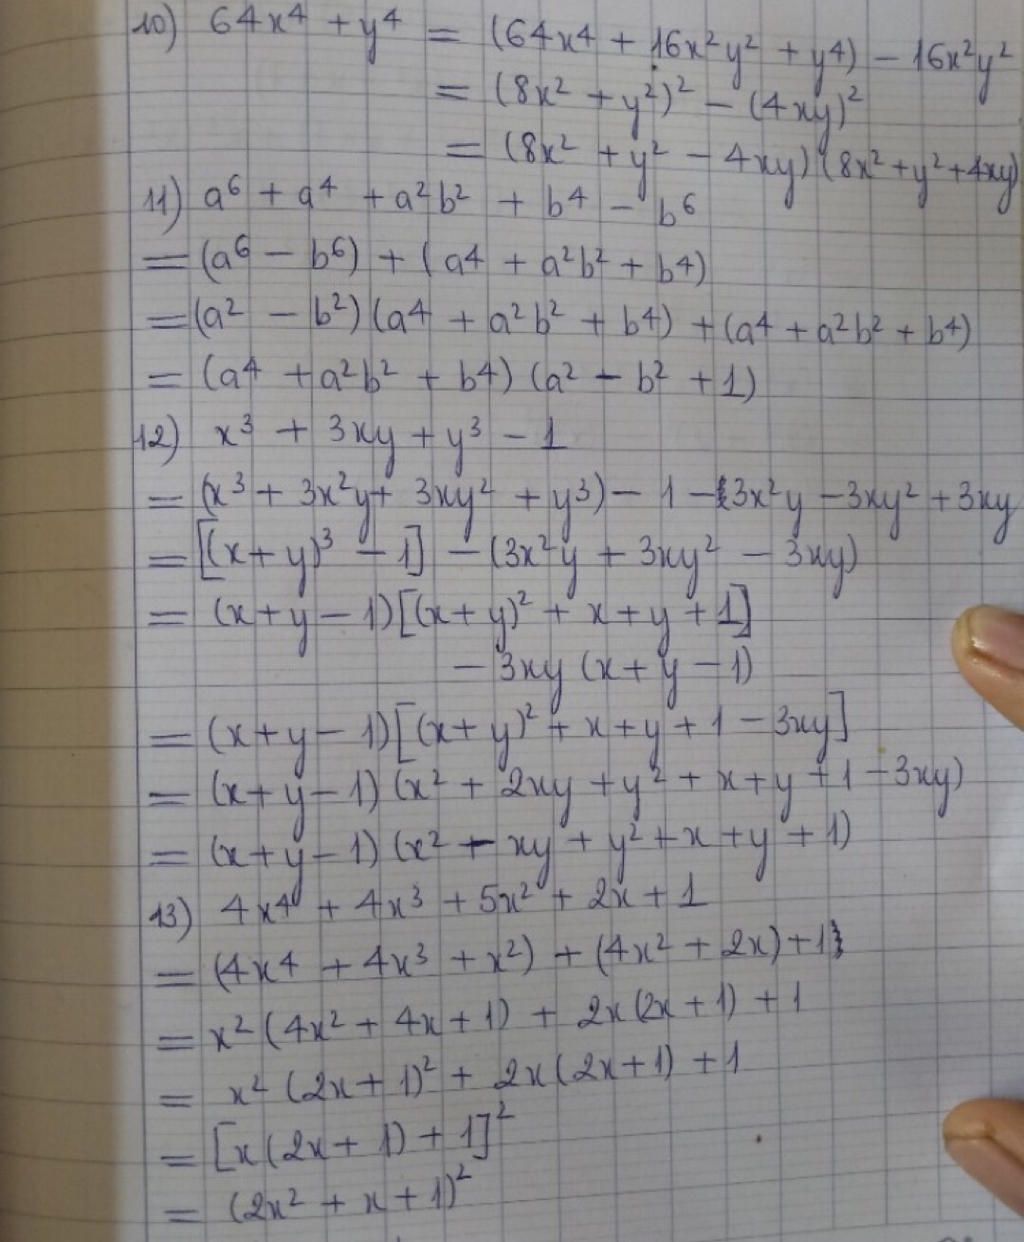 10) 64x⁴ + y⁴ = (64x⁴ + 16x²y² + y⁴) - 16x²y²
= (8x² + y²)² - (4xy)²
= (8x² + y² - 4xy)(8x² + y² + 4xy)
11) a⁶ + a⁴ + a²b² + b⁴ - b⁶
= (a⁶ - b⁶) + (a⁴ + a²b² + b⁴)
= (a² - b²)(a⁴ + a²b² + b⁴) + (a⁴ + a²b² + b⁴)
= (a⁴ + a²b² + b⁴)(a² - b² + 1)
12) x³ + 3xy + y³ - 1
= (x³ + 3x²y + 3xy² + y³) - 1 - 3x²y - 3xy² + 3xy
= [(x+y)³ - 1] - (3x²y + 3xy² - 3xy)
= (x+y-1)[(x+y)² + x+y+1]
- 3xy(x+y-1)
= (x+y-1)[(x+y)² + x+y+1 - 3xy]
= (x+y-1)(x² + 2xy + y² + x+y+1 - 3xy)
= (x+y-1)(x² - xy + y² + x + y + 1)
13) 4x⁴ + 4x³ + 5x² + 2x + 1
= (4x⁴ + 4x³ + x²) + (4x² + 2x) + 1
= x²(4x² + 4x + 1) + 2x(2x + 1) + 1
= x²(2x + 1)² + 2x(2x+1) + 1
= [x(2x+1) + 1]²
= (2x² + x + 1)²